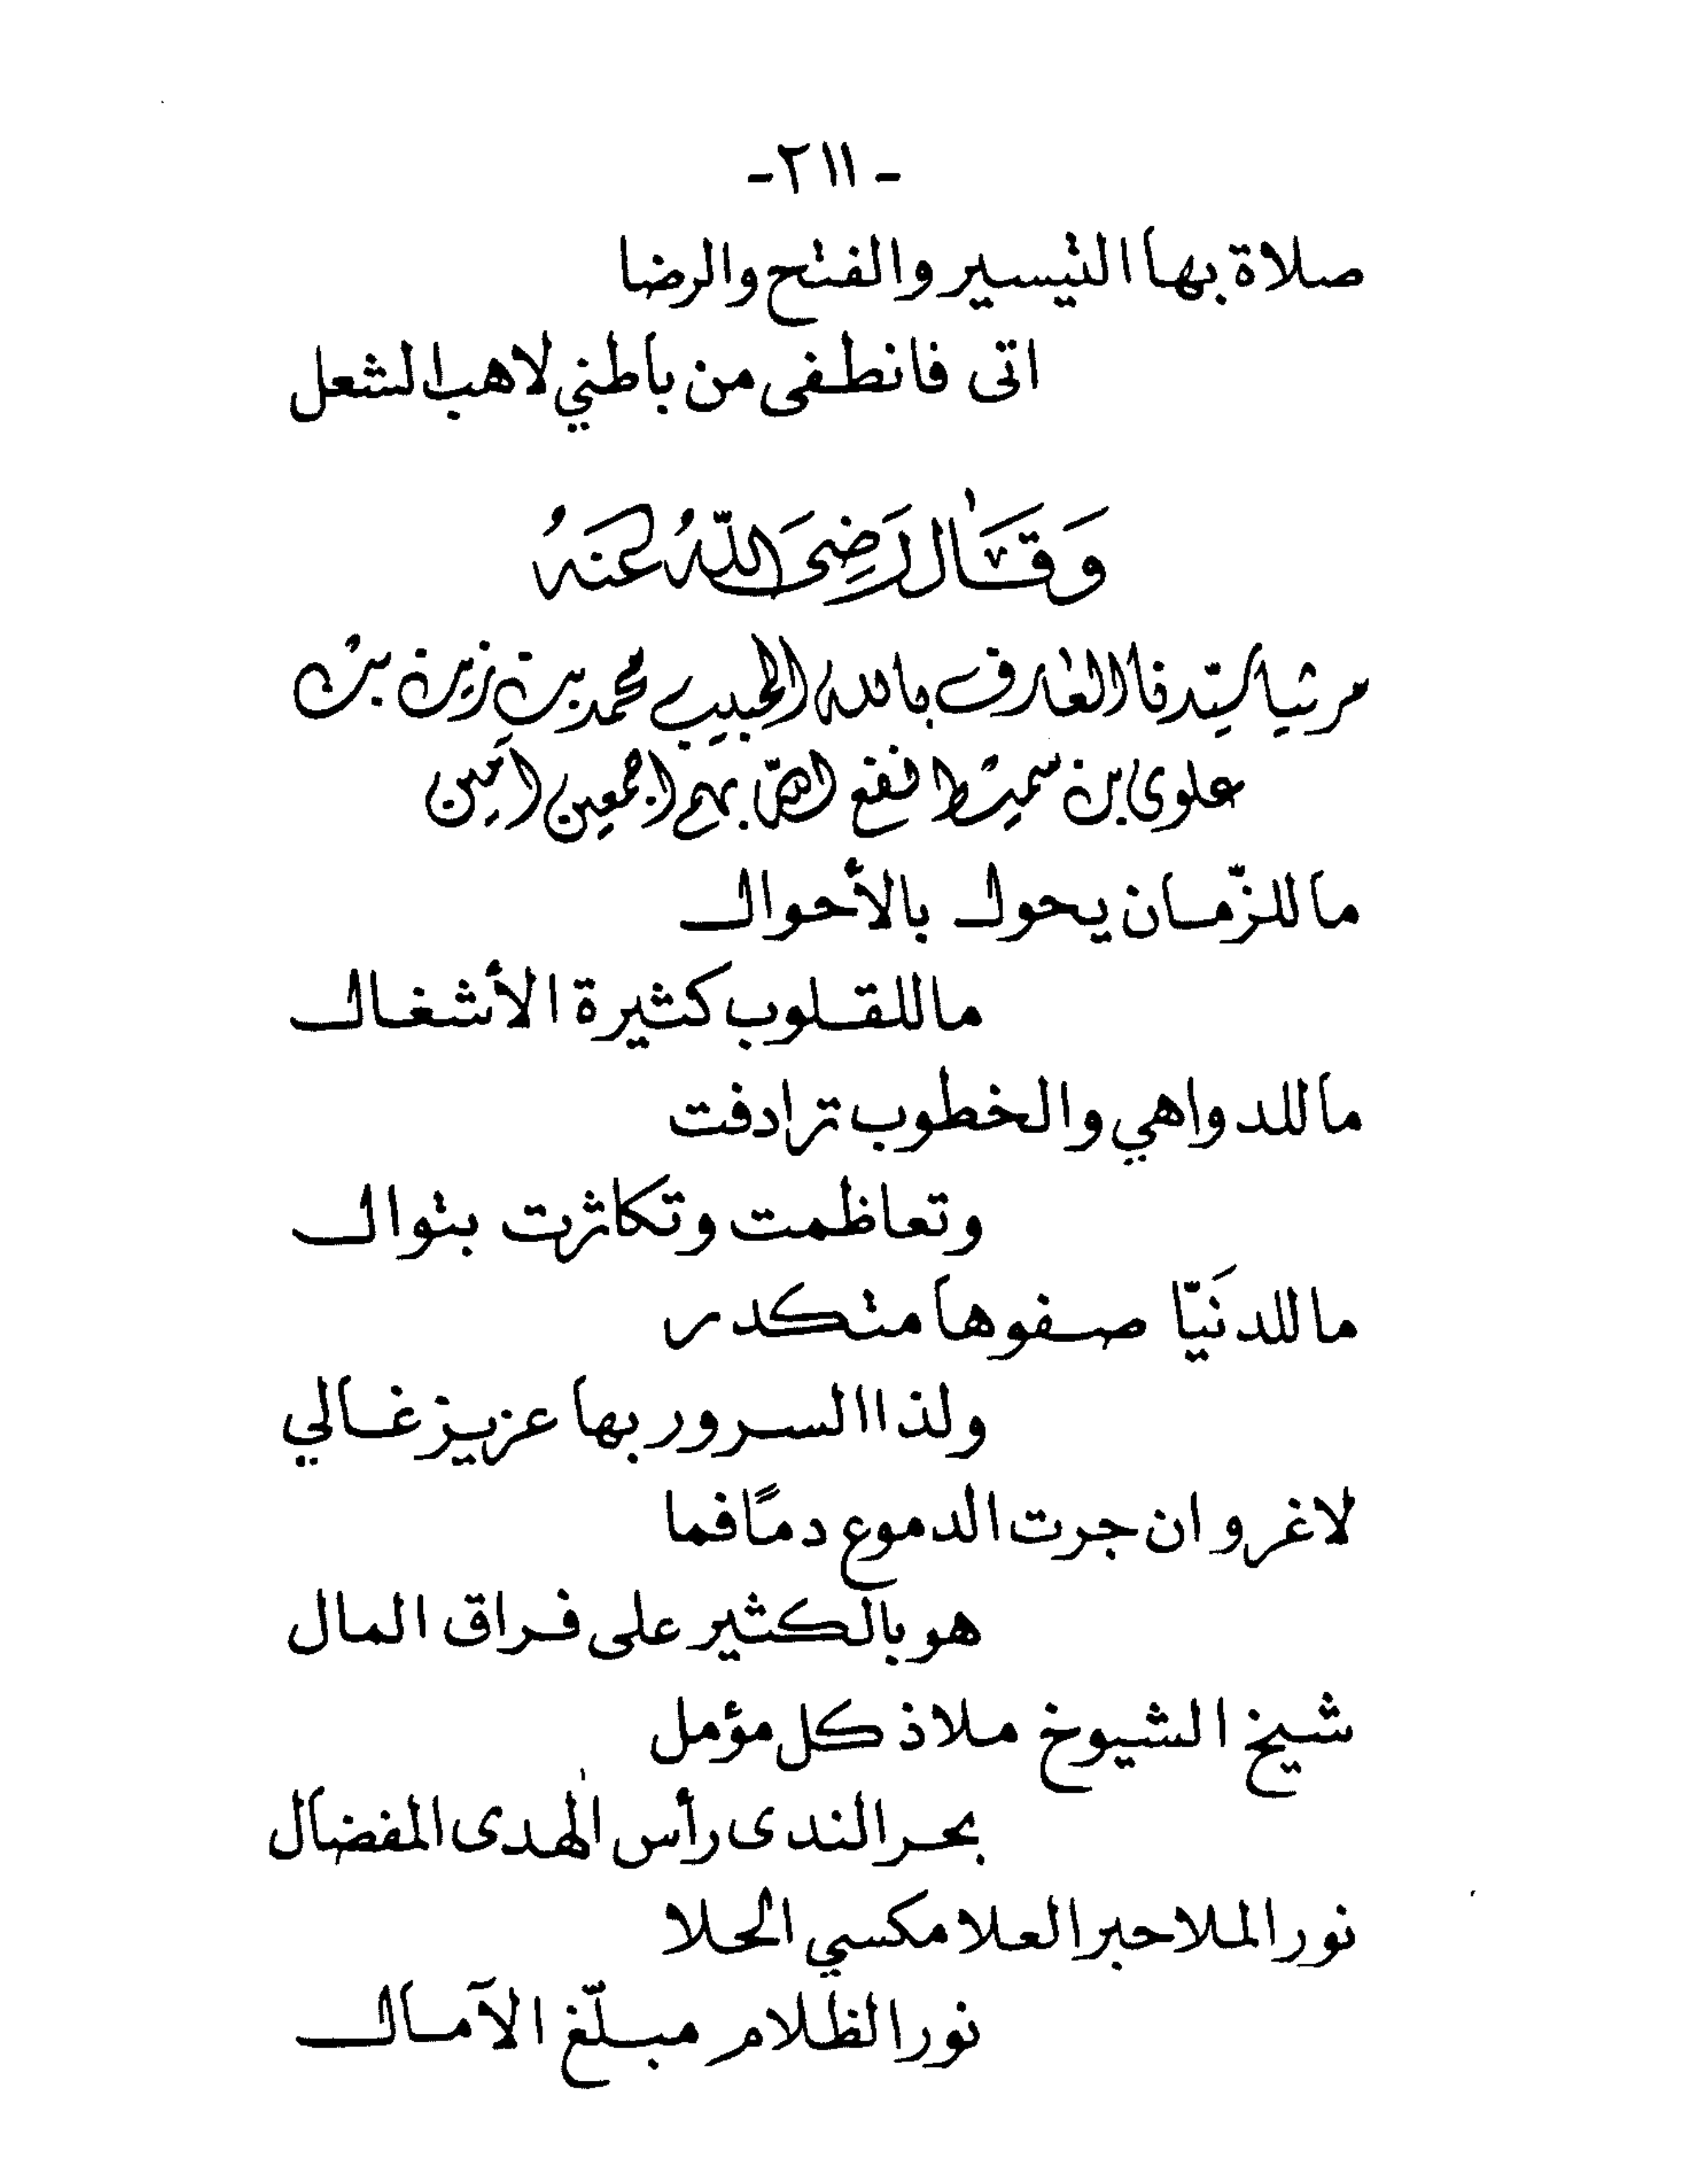 - ٢١١ -
صلاة بها التيسير والفتح والرضا
اتى فانطفى من باطني لاهب الشعل
وَقَال رَضِىَ اللّهُ عَنهُ
مرثيا لسيّدنا العارف بالله الحبيب محمد بن زين بن
علوي بن سميط نفع الله بهم اجمعين امين
ما للزّمان يحول بالأحوال
ما للقلوب كثيرة الأشغال
ما للدواهي والخطوب ترادفت
وتعاظمت وتكاثرت بتوال
ما للدنَيّا صفوها متكدر
ولذا السرور بها عزيز غالي
لاغرو ان جرت الدموع دمًا فما
هو بالكثير على فراق المال
شيخ الشيوخ ملاذ كل مؤمل
بحر الندى رأس الهدى المفضال
نور الملا حبر العلا مكسي الحلا
نور الظلام مبلّغ الآمال